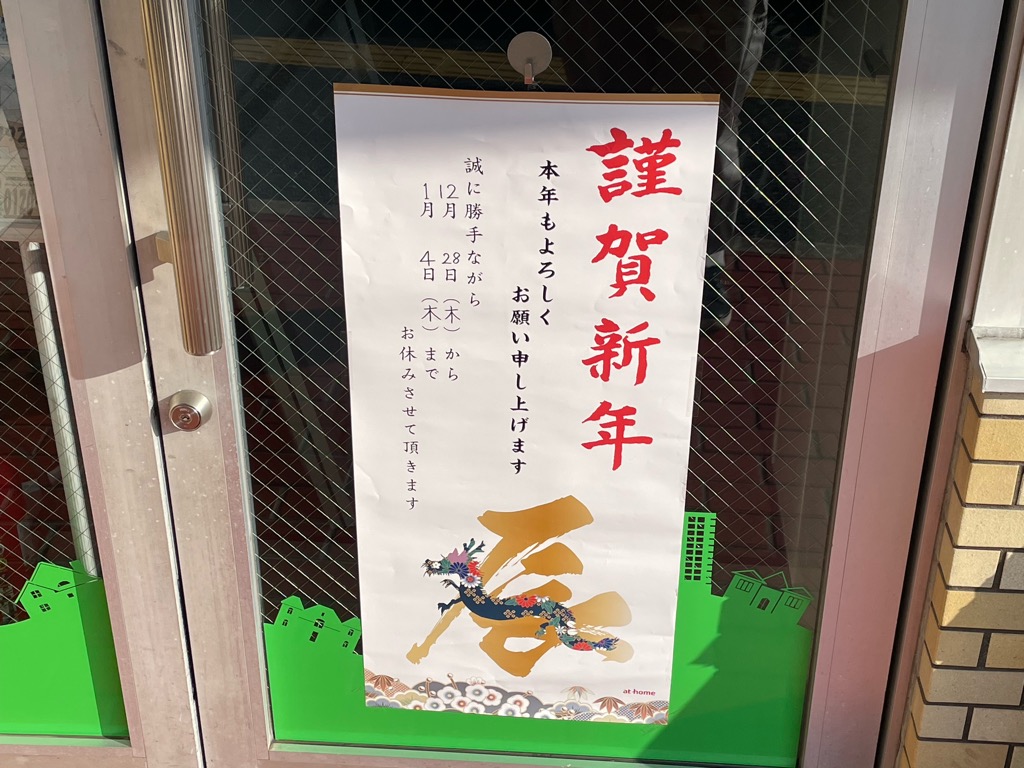 謹賀新年
本年もよろしく
お願い申し上げます
誠に勝手ながら
12月 28日（木）から
1月 4日（木）まで
お休みさせて頂きます
辰
at home